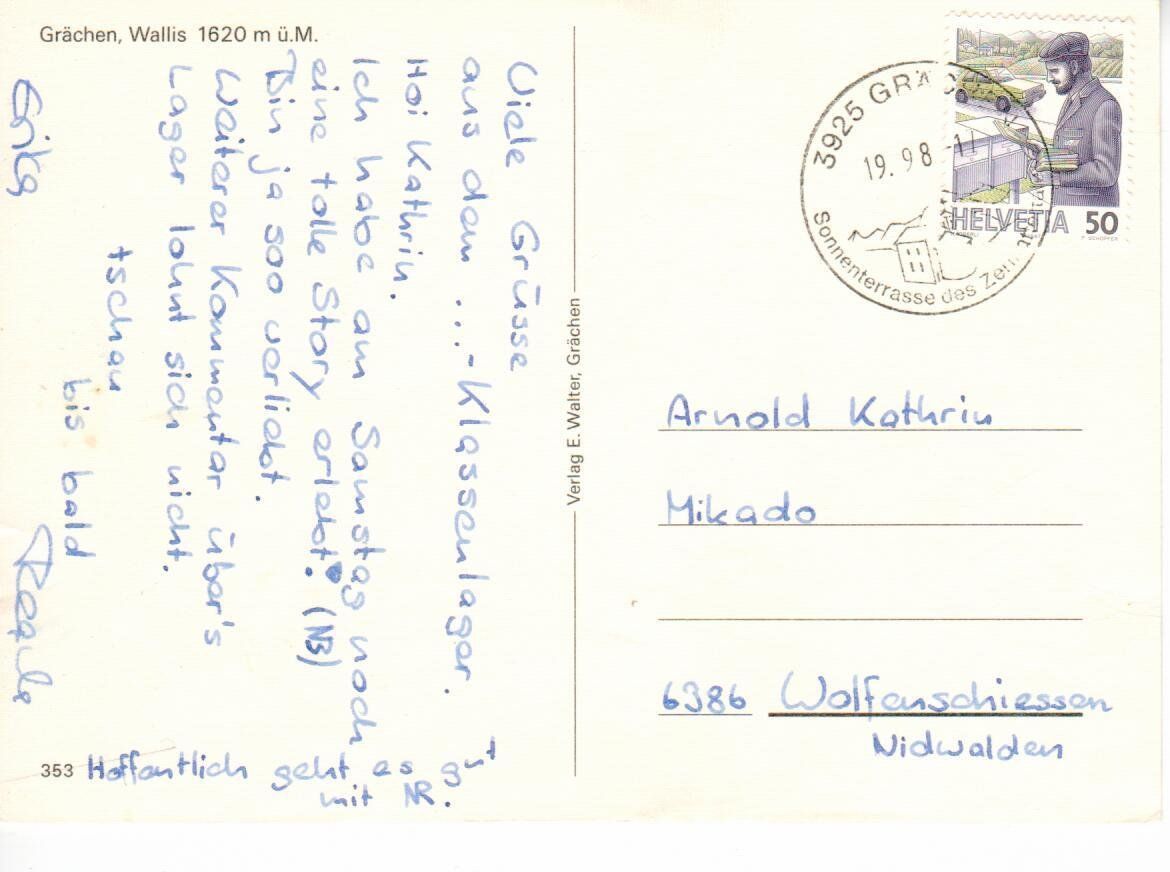 Grächen, Wallis 1620 m ü.M.
Viele Grüsse
aus dem ...-Klassenlager.
Hoi Kathrin.
Ich habe am Samstag noch
eine tolle Story erlebt. (NB)
Bin ja soo verliebt.
Weiterer Kommentar über's
Lager lohnt sich nicht.
tschau
bis bald
Erika
Regula
353
Hoffentlich geht es gut
mit NR.
Verlag E. Walter, Grächen
3925 GRÄC
19.9.8 -11
Sonnenterrasse des
HELVETIA 50
Arnold Kathrin
Mikado
6386 Wolfenschiessen
Nidwalden